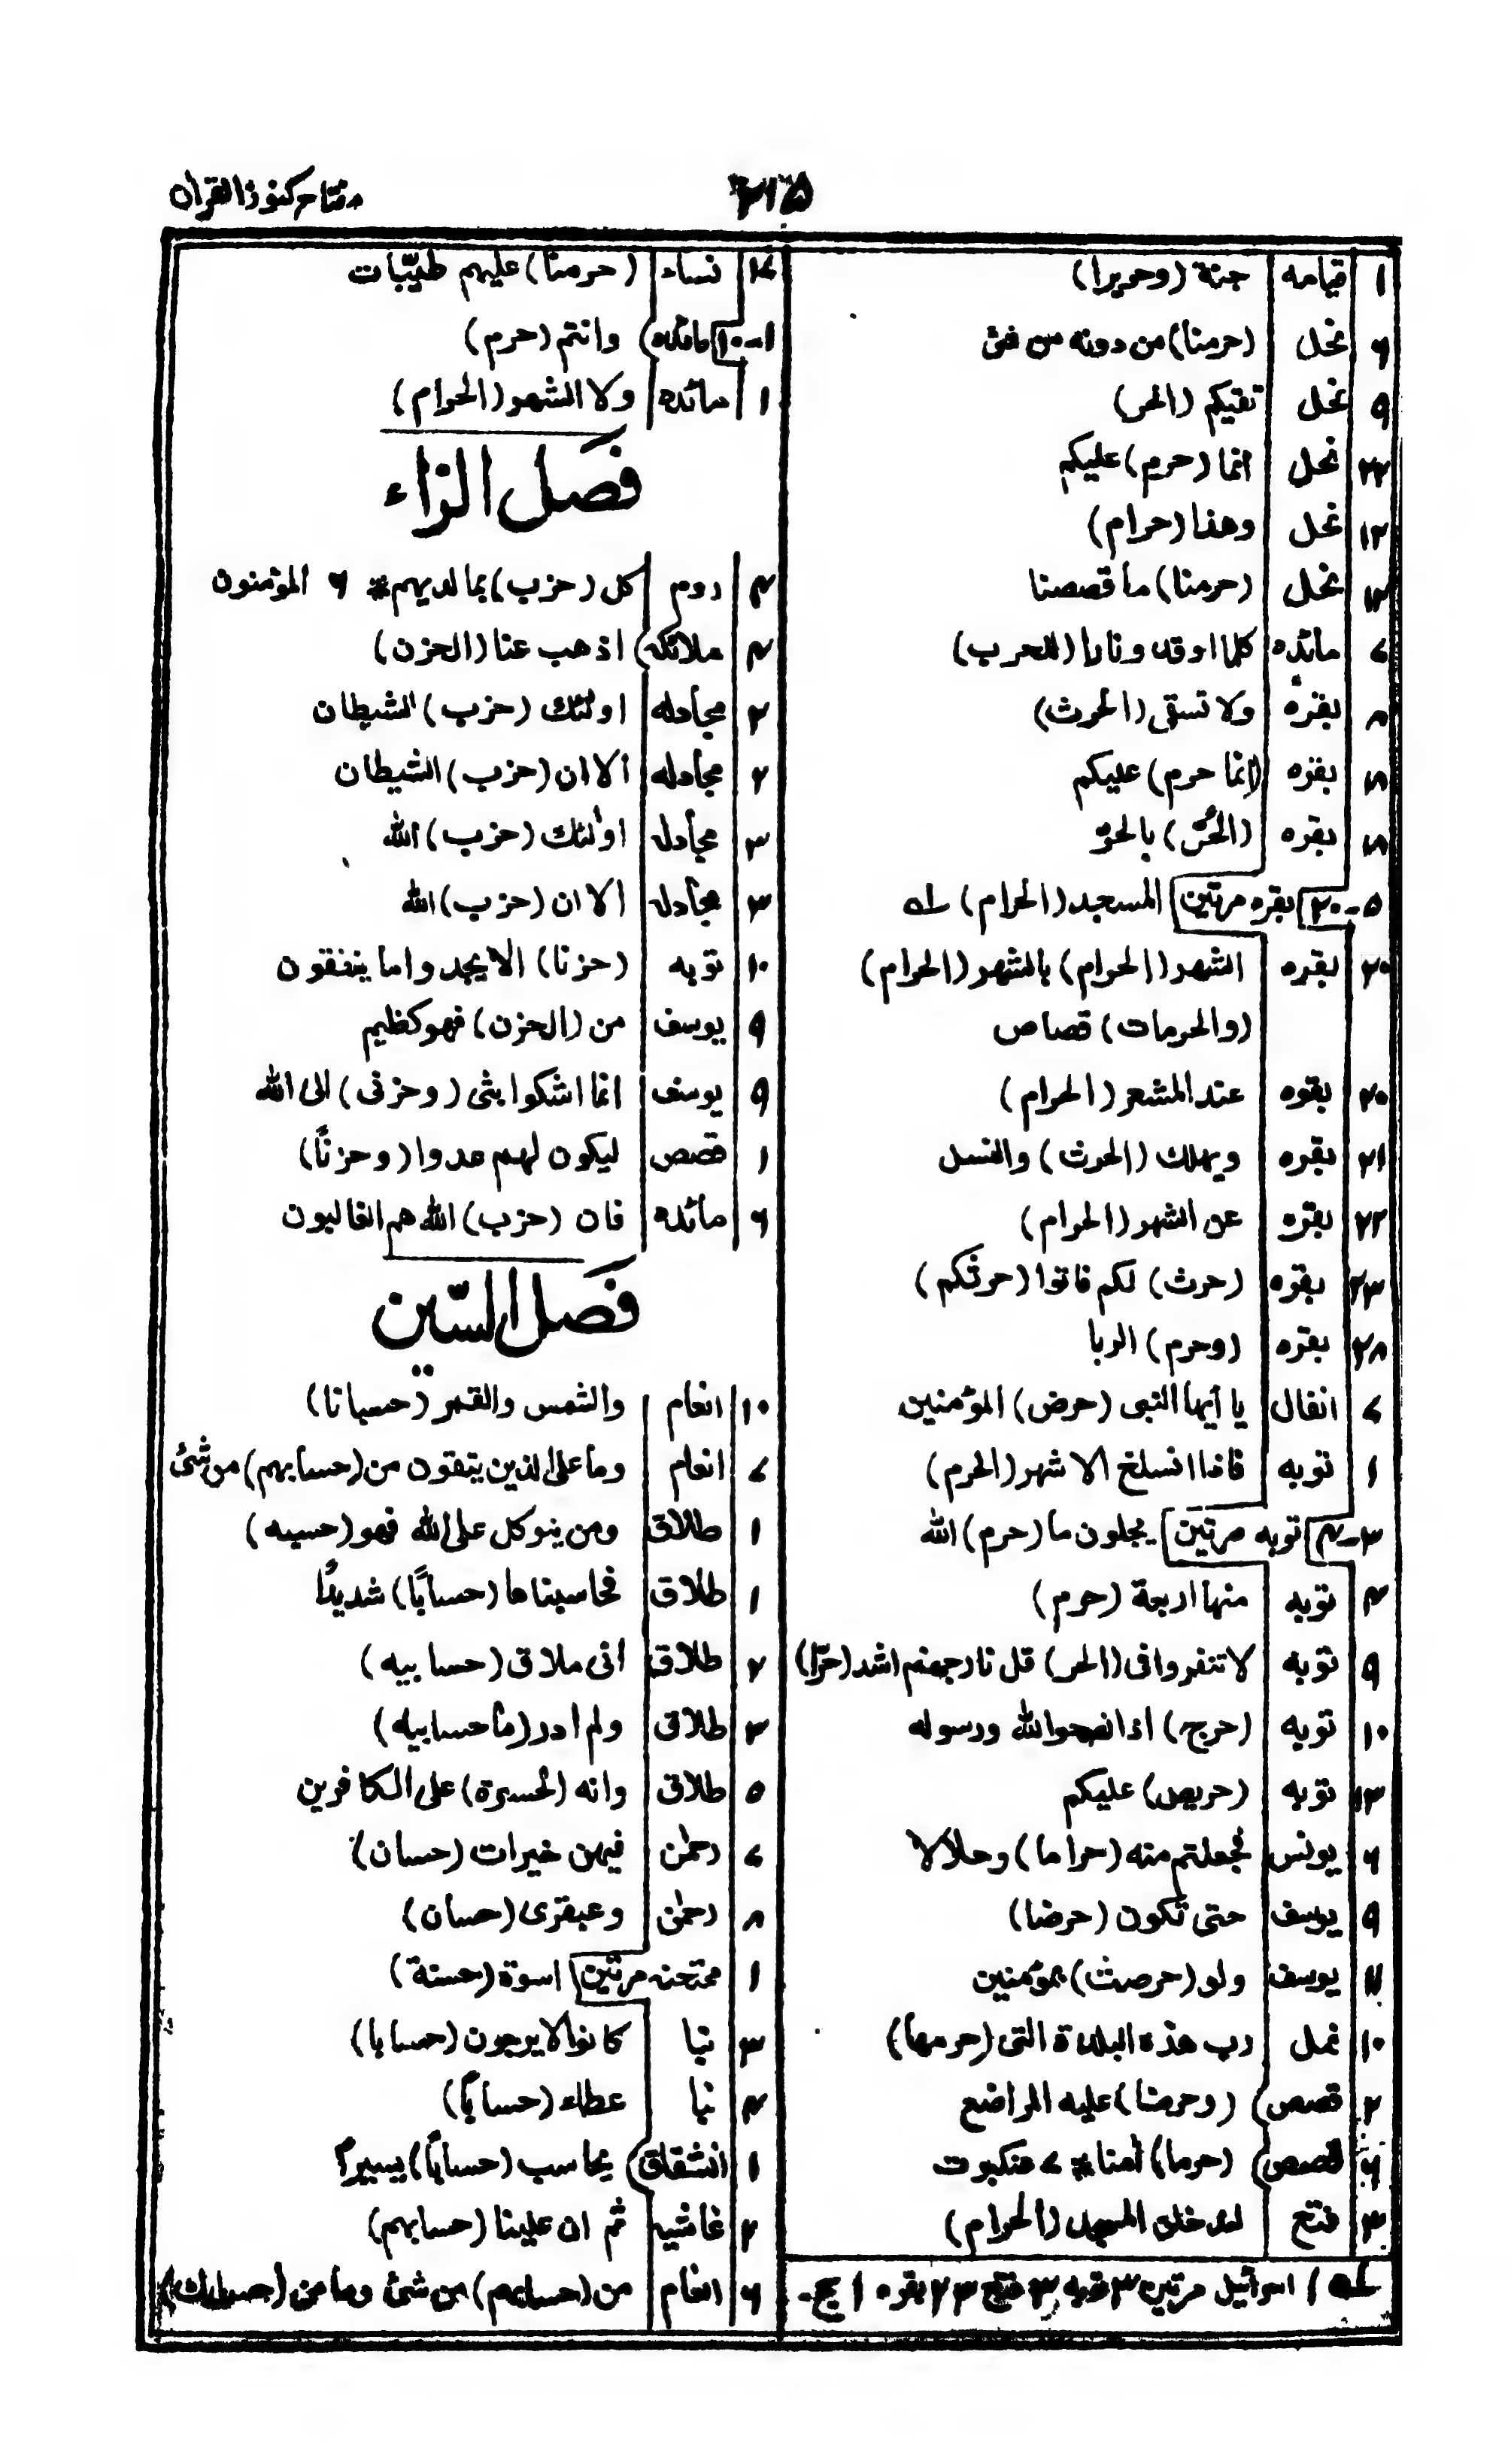 مفتاح كنوز القران
٢١٥
١ قيامه جنة (وحريرا)
٦ نحل (حرمنا) من دونه من شئ
٩ نحل تقيكم (الحر)
٢٢ نحل انما (حرم) عليكم
١٢ نحل وهذا (حرام)
١٢ نحل (حرمنا) ما قصصنا
٧ مائده كلما اوقدو نارا (للحرب)
٨ بقره ولا تسقى (الحرث)
بقره (انما حرم) عليكم
بقره (الحُرّ) بالحرّ
٥-٢٠ بقره مرتين المسجد (الحرام) له
٢٠ بقره الشهر (الحرام) بالشهر (الحرام)
(والحرمات) قصاص
٢٠ بقره عند المشعر (الحرام)
٢١ بقره ويهلك (الحرث) والنسل
٢٢ بقره عن الشهر (الحرام)
٢٣ بقره (حرث) لكم فاتوا (حرثكم)
٢٨ بقره (وحرم) الربا
٧ انفال يا أيها النبى (حرض) المؤمنين
١ توبه فاذا انسلخ الاشهر (الحرم)
٣-٤ توبه مرتين يحلون ما (حرم) الله
٤ توبه منها اربعة (حرم)
٩ توبه لا تنفروا فى (الحر) قل نار جهنم اشد (حرّا)
١٠ توبه (حرج) اذا نصحوا لله ورسوله
١٣ توبه (حريص) عليكم
٦ يونس فجعلتم منه (حراما) وحلالا
٩ يوسف حتى تكون (حرضا)
١١ يوسف ولو (حرصت) بمؤمنين
١٠ نمل رب هذه البلدة التى (حرمها)
٢ قصص (وحرمنا) عليه المراضع
٦ قصص (حرما) أمنا * ٧ عنكبوت
٣ فتح لتدخلن المسجد (الحرام)
له ١ اسرائيل مرتين ٣ توبه ٣ فتح ٢٣ بقره ١ حج
١٢ نساء (حرمنا) عليهم طيّبات
١-١٠ مائده وانتم (حرم)
١ مائده ولا الشهر (الحرام)
فصل الزاء
٤ روم كل (حزب) بما لديهم * ٦ المؤمنون
٤ ملائكه اذهب عنا (الحزن)
٢ مجادله اولئك (حزب) الشيطان
٢ مجادله الا ان (حزب) الشيطان
٣ مجادله اولئك (حزب) الله
٣ مجادله الا ان (حزب) الله
١٠ توبه (حزنا) الا يجدواما ينفقون
٩ يوسف من (الحزن) فهو كظيم
٩ يوسف انما اشكوا بثى (وحزنى) الى الله
١ قصص ليكون لهم عدوا (وحزنًا)
٦ مائده فان (حزب) الله هم الغالبون
فصل السّين
١٠ انعام والشمس والقمر (حسبانا)
٧ انعام وما على الذين يتقون من (حسابهم) من شئ
١ طلاق ومن يتوكل على الله فهو (حسبه)
١ طلاق فحاسبناها (حسابًا) شديدًا
٢ طلاق انى ملاق (حسابيه)
٣ طلاق ولم ادر (ما حسابيه)
٥ طلاق وانه (لحسرة) على الكافرين
٧ رحمٰن فيهن خيرات (حسان)
٨ رحمٰن وعبقرى (حسان)
١ ممتحنه مرتين اسوة (حسنة)
٣ نبا كانوا لا يرجون (حسابا)
٤ نبا عطاء (حسابًا)
١ انشقاق يحاسب (حسابًا) يسيرًا
٢ غاشيه ثم ان علينا (حسابهم)
٦ انعام من (حسابهم) من شئ وما من (حسابك)